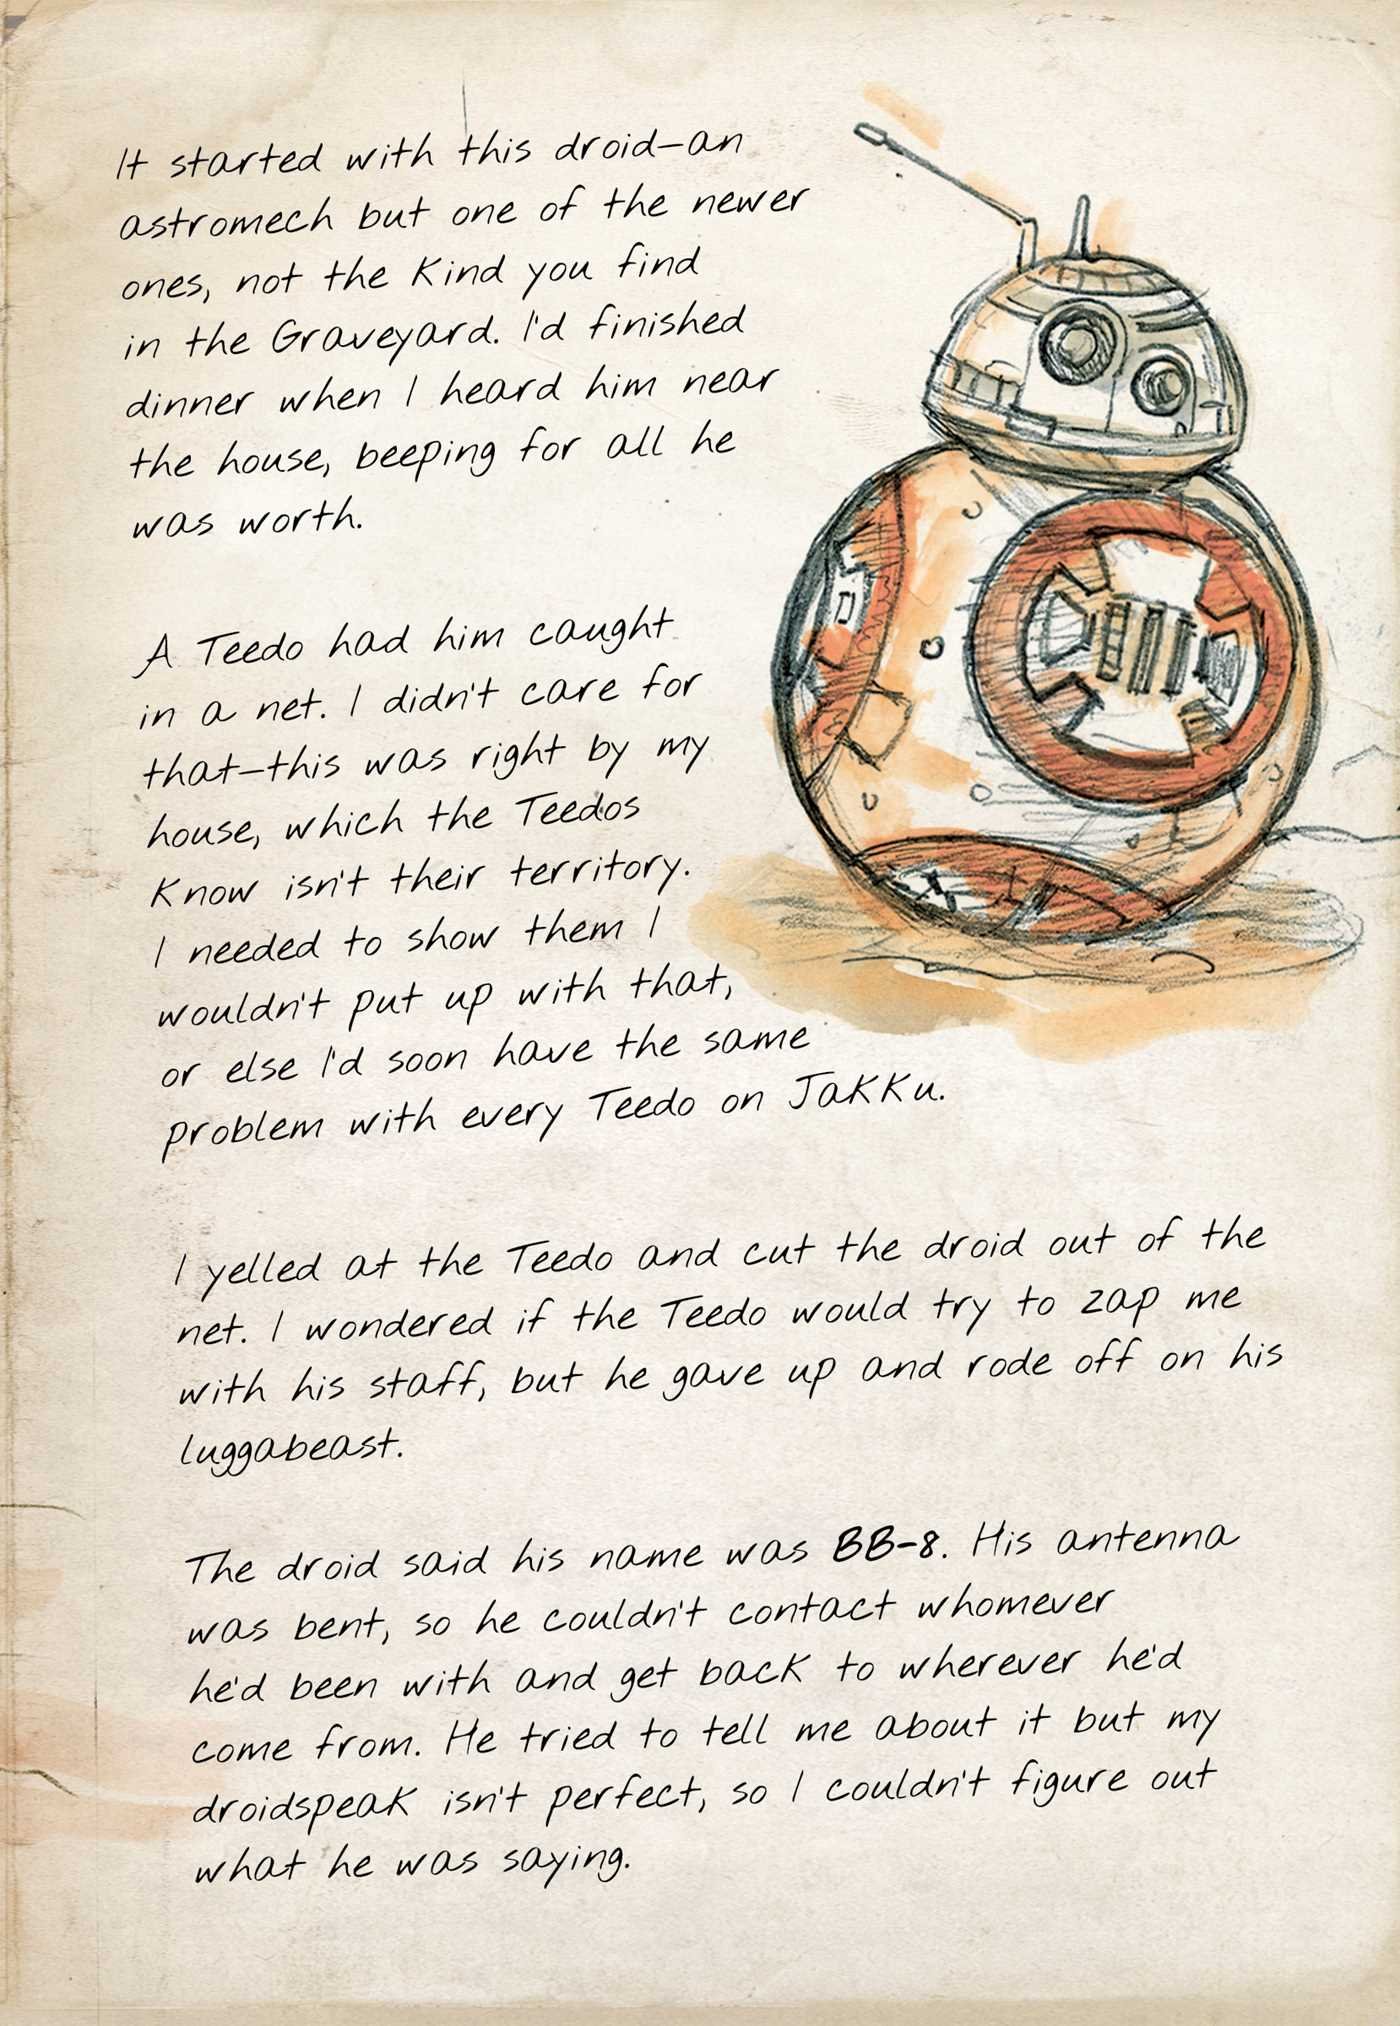 It started with this droid—an
astromech but one of the newer
ones, not the kind you find
in the Graveyard. I'd finished
dinner when I heard him near
the house, beeping for all he
was worth.
A Teedo had him caught
in a net. I didn't care for
that—this was right by my
house, which the Teedos
know isn't their territory.
I needed to show them I
wouldn't put up with that,
or else I'd soon have the same
problem with every Teedo on Jakku.
I yelled at the Teedo and cut the droid out of the
net. I wondered if the Teedo would try to zap me
with his staff, but he gave up and rode off on his
luggabeast.
The droid said his name was BB-8. His antenna
was bent, so he couldn't contact whomever
he'd been with and get back to wherever he'd
come from. He tried to tell me about it but my
droidspeak isn't perfect, so I couldn't figure out
what he was saying.